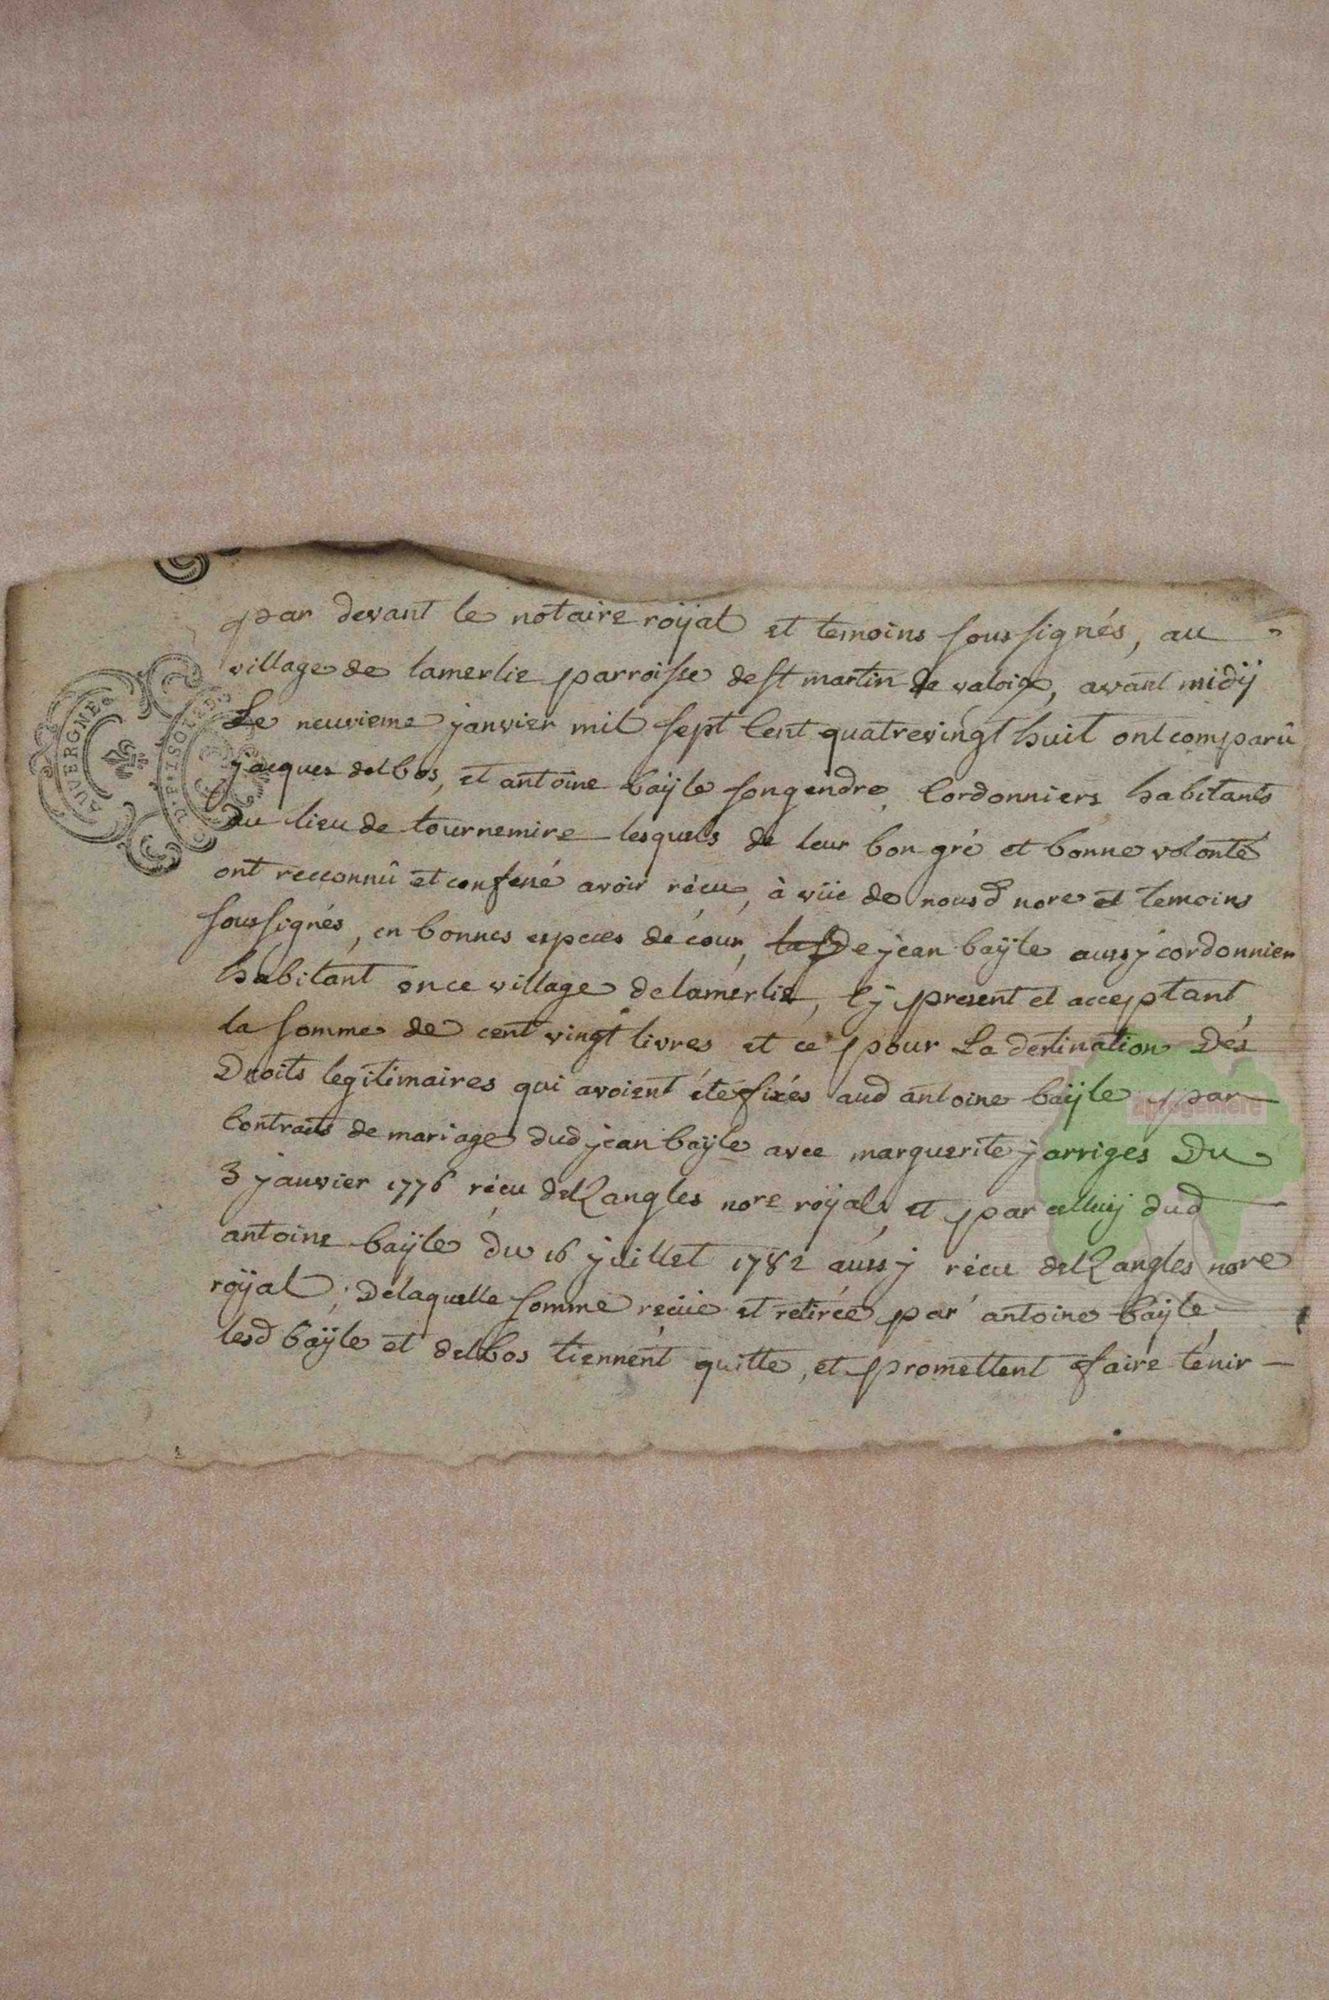 AUVERGNE
D. F. ISOLED
par devant le notaire roÿal et temoins soussignés, au
village de lamerlie parroisse de st martin de valoix, avant midÿ
Le neuvieme janvier mil sept Cent quatrevingt huit ont comparû
jacques delbos, et antoine baÿle son gendre, Cordonniers habitants
du lieu de tournemire lesquels de leur bon gré et bonne volonté
ont recconnû et confessé avoir récu, à vüe de nousd nore et temoins
soussignés, en bonnes especes de cour, de jean baÿle aussy cordonnier
habitant en ce village de lamerlie, Cÿ present et acceptant,
la somme de cent vingt livres et ce pour La destination Dés
Droits legitimaires qui avoient été fixés aud antoine baÿle par
Contraits de mariage dud jean baÿle avec marguerite jarriges Du
3 janvier 1776 récu delZangles nore roÿal, et par celluÿ dud
antoine baÿle du 16 juillet 1782 aussy récu delZangles nore
roÿal; Delaquelle somme reçüe et retirée par antoine baÿle
lesd baÿle et delbos tiennent quitte, et promettent faire tenir
aprogemere